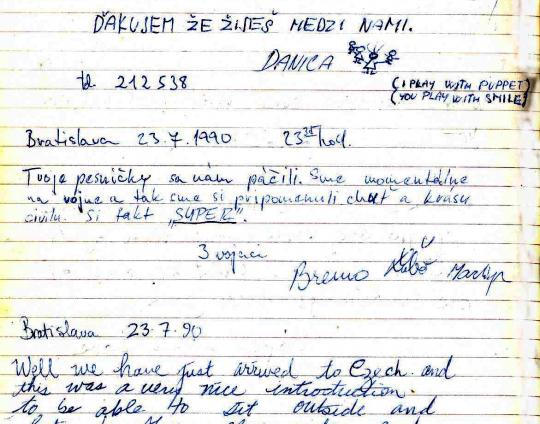 ĎAKUJEM ŽE ŽIJEŠ MEDZI NAMI.
DANICA
tel. 212538
(I PLAY WITH PUPPET)
(YOU PLAY WITH SMILE)
Bratislava 23.7.1990 23 hod.
Tvoje pesničky sa nám páčili. Sme momentálne
na vojne a tak sme si pripomenuli chuť a krásu
civilu. Si fakt „SUPER".
3 vojaci
Bratislava 23.7.90
Well we have just arrived to Czech and
this was a very nice introduction.
to be able to sit outside and